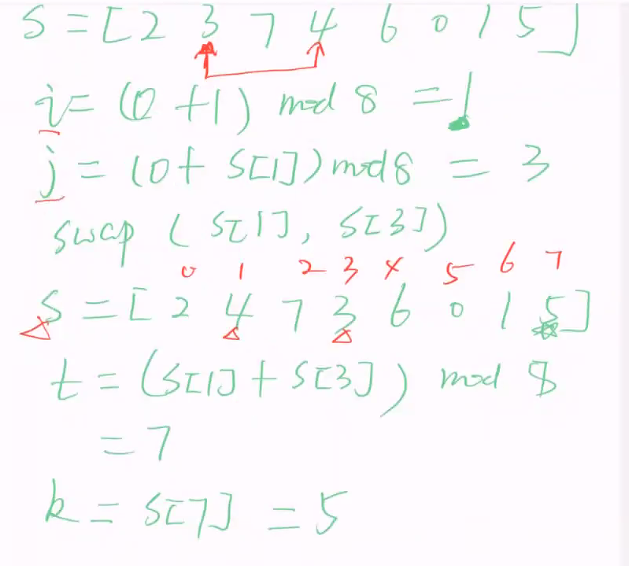 S = [2 3 7 4 6 0 1 5]
i = (0 + 1) mod 8 = 1
j = (0 + S[1]) mod 8 = 3
swap (S[1], S[3])
0 1 2 3 4 5 6 7
S = [2 4 7 3 6 0 1 5]
t = (S[1] + S[3]) mod 8
= 7
k = S[7] = 5